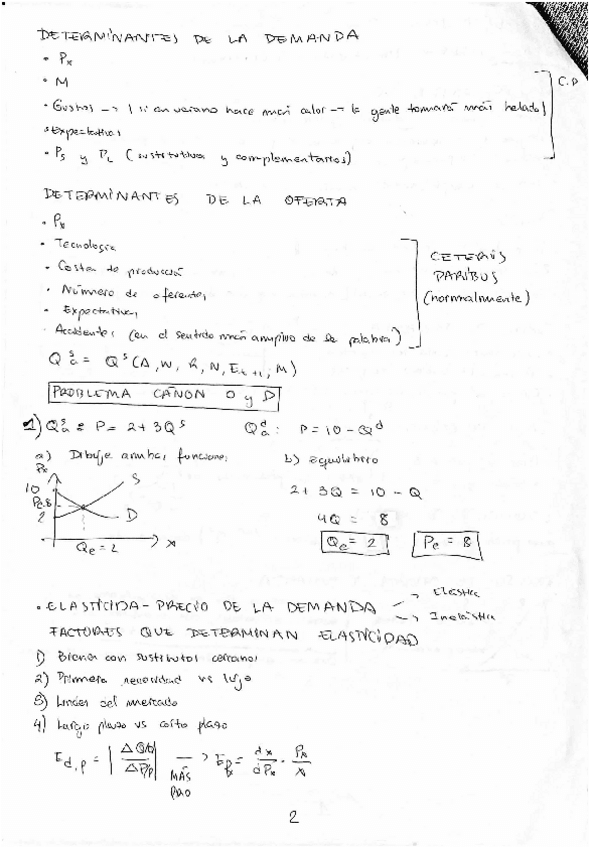 DETERMINANTES DE LA DEMANDA
• Px
• M
• Gustos → (si en verano hace más calor → la gente tomará más helado)
• Expectativas
• Ps y Pc (sustitutivos y complementarios)
C.P
DETERMINANTES DE LA OFERTA
• Px
• Tecnología
• Costes de producción
• Número de oferentes
• Expectativas
• Accidentes (en el sentido más amplio de la palabra)
CETERIS
PARIBUS
(normalmente)
PROBLEMA CANON O y D
1) P = 2 + 3Qs P = 10 - Qd
a) Dibuje ambas funciones b) equilibrio
Px
10
Pe.8
2
S
D
Qe = 2
x
2 + 3Q = 10 - Q
4Q = 8
Qe = 2 Pe = 8
• ELASTICIDA - PRECIO DE LA DEMANDA → Elástica
→ Inelástica
FACTORES QUE DETERMINAN ELASTICIDAD
1) Bienes con sustitutos cercanos
2) Primera necesidad vs lujo
3) Límites del mercado
4) Largo plazo vs corto plazo
Ed,p = | ΔQ/Q / ΔP/P | → = dx/dPx · Px/x
MÁS
2